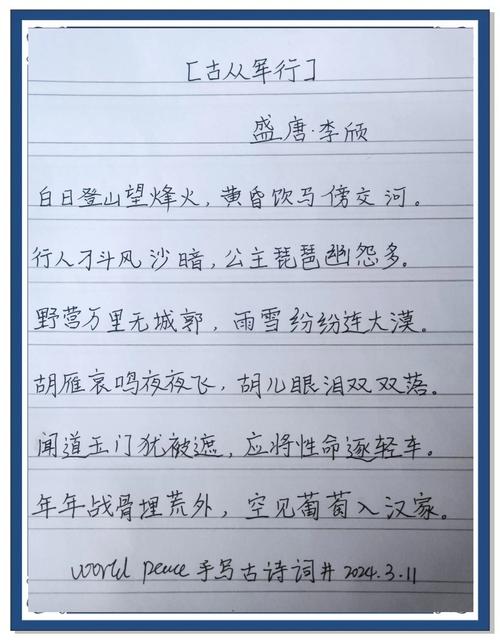 [古从军行]
盛唐·李颀
白日登山望烽火，黄昏饮马傍交河。
行人刁斗风沙暗，公主琵琶幽怨多。
野营万里无城郭，雨雪纷纷连大漠。
胡雁哀鸣夜夜飞，胡儿眼泪双双落。
闻道玉门犹被遮，应将性命逐轻车。
年年战骨埋荒外，空见葡萄入汉家。
world peace 手写古诗词井 2024.3.11